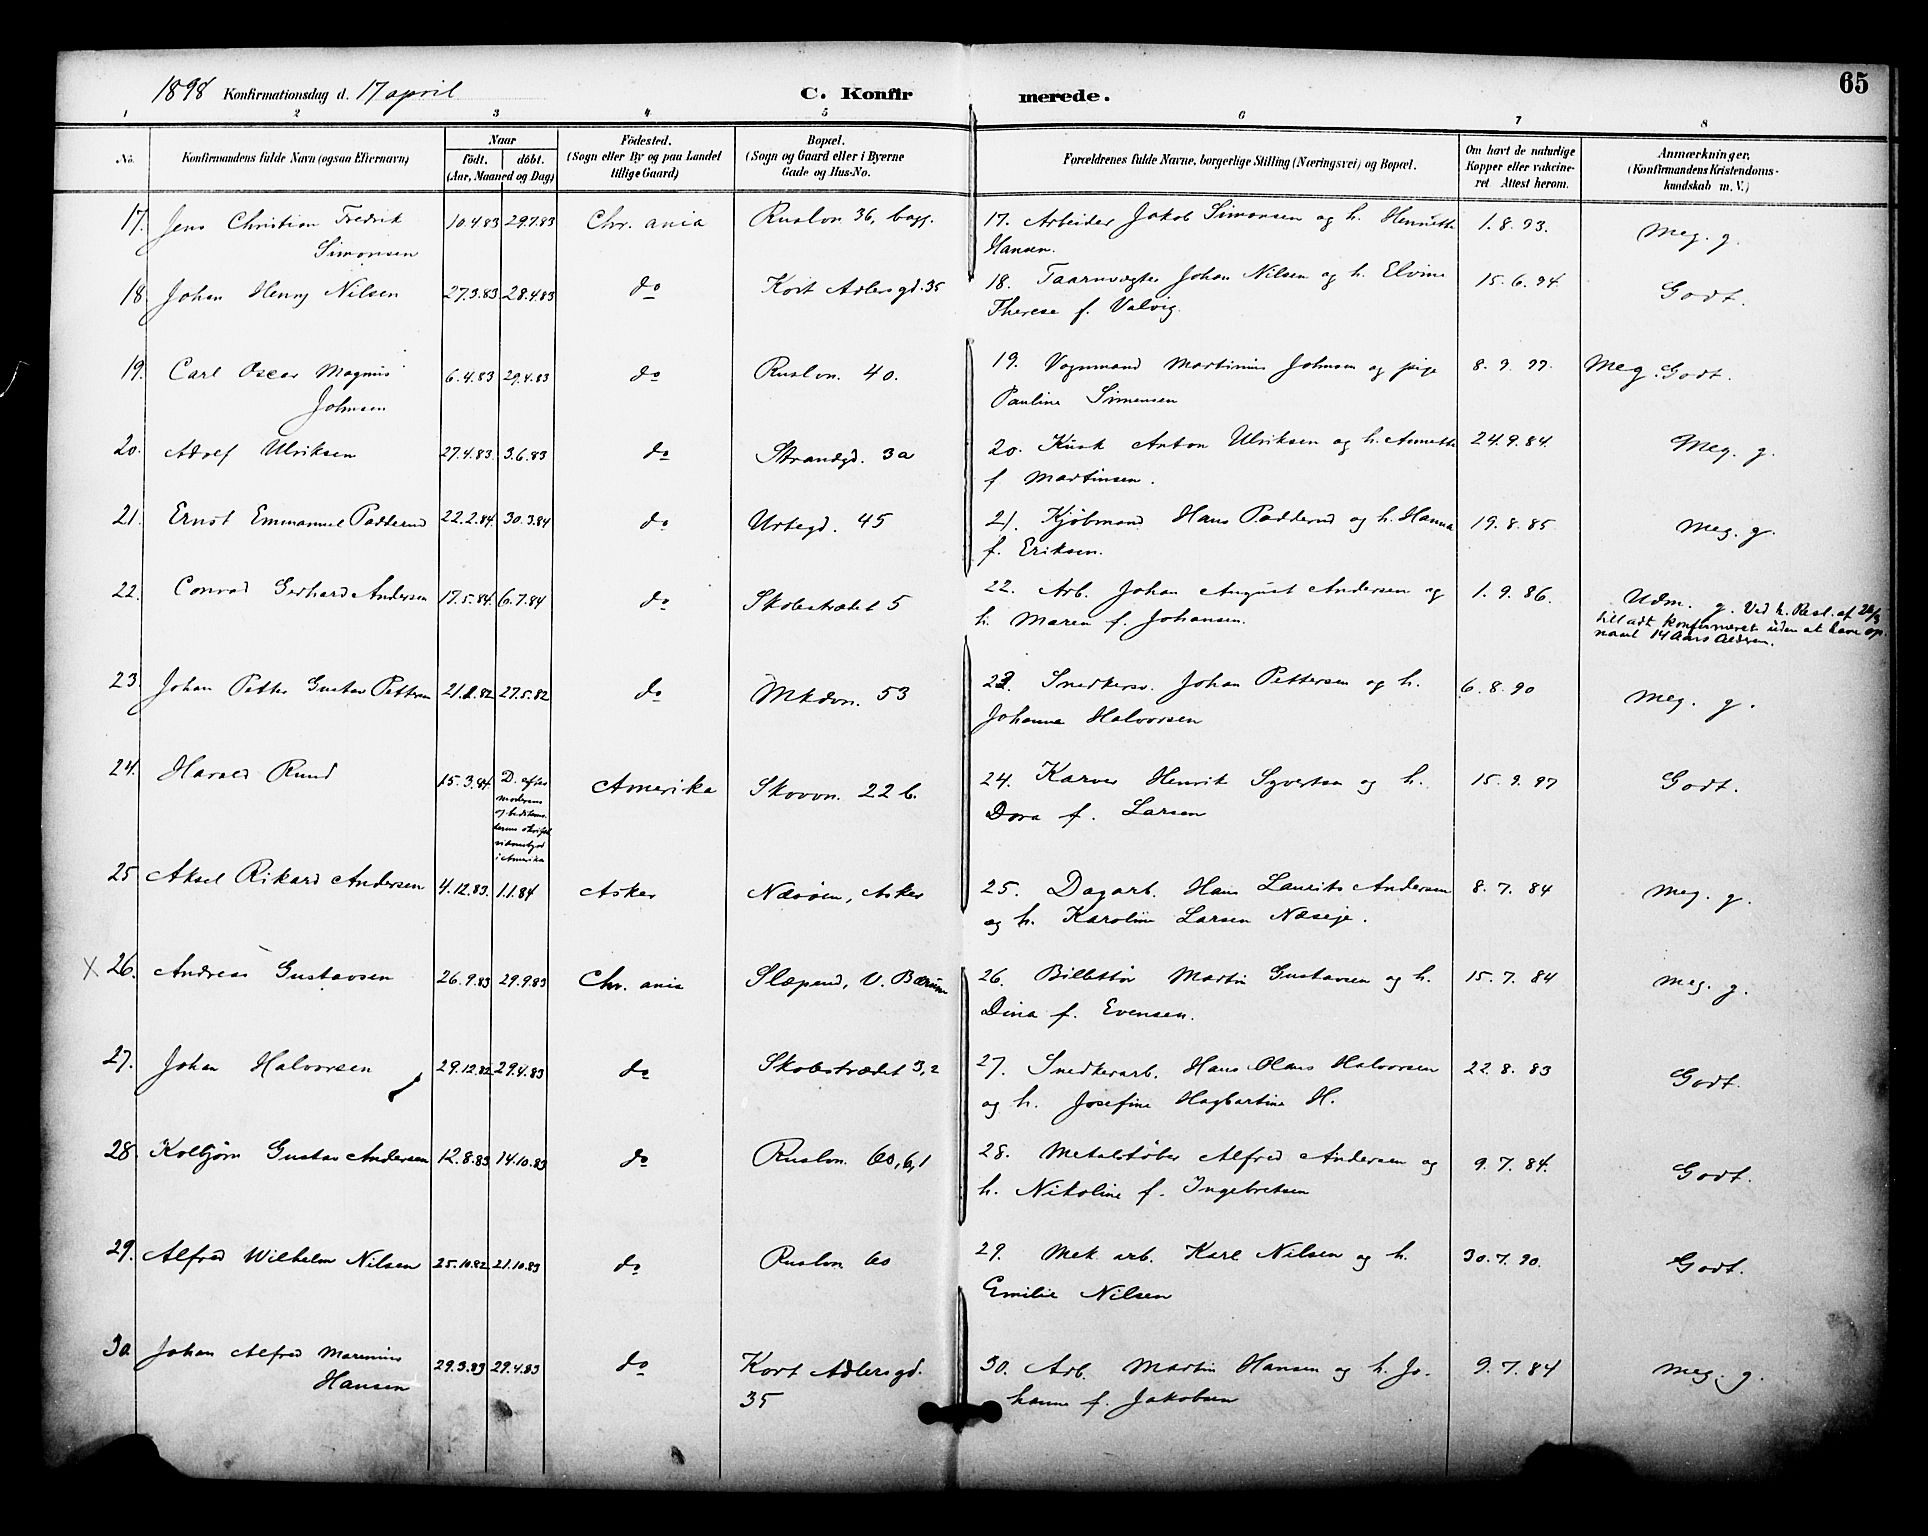 65
1898 Konfirmationsdag d. 17 april C. Konfirmerede.
1 2 3 4 5 6 7 8
No. Konfirmandens fulde Navn (ogsaa Efternavn) Naar födt. döbt. (Aar, Maaned og Dag) Födested. (Sogn eller By og paa Landet tillige Gaard) Bopæl. (Sogn og Gaard eller i Byerne Gade og Hus-No. Forældrenes fulde Navne, borgerlige Stilling (Næringsvei) og Bopæl. Om havt de naturlige Kopper eller vakcineret Attest herom. Anmærkninger. (Konfirmandens Kristendomskundskab m. V.)
17. Jens Christian Fredrik Simonsen 10.4.83 29.7.83 Chr. ania Ruslvn 36, bagg. 17. Arbeider Jakob Simonsen og h. Henriette Hansen. 1.8.93. Meg. g.
18. Johan Henry Nilsen 27.3.83 28.4.83 do Kort Adlersgd. 35 18. Taarnvægter Johan Nilsen og h. Elvine Therese f. Valvig. 15.6.94 Godt.
19. Carl Oscar Magnus Johnsen 6.4.83 29.4.83 do Ruslvn. 40. 19. Vognmand Martinius Johnsen og pige Pauline Simensen 8.9.97. Meg. Godt.
20. Adolf Ulriksen 27.4.83. 3.6.83 do Strandgd. 3a 20. Kusk Anton Ulriksen og h. Annette f Martinsen. 24.9.84. Meg. g.
21. Ernst Emmanuel Padderud 22.2.84. 30.3.84 do Urtegd. 45 21. Kjøbmand Hans Padderud og h. Hanna f. Eriksen. 19.8.85 Meg. g.
22. Conrad Gerhard Andersen 17.5.84. 6.7.84 do Skolestrædet 5 22. Arb. Johan August Andersen og h. Maren f. Johansen. 1.9.86. Udm. g. Ved k. Resl. af tilladt konfirmeret uden at have opnaaet 14 Aars Alderen.
23. Johan Petter Gustav Pettersen 21.2.82 27.5.82 do Mkdvn. 53 23. Snedkersv. Johan Pettersen og h. Johanne Halvorsen 6.8.90 Meg. g.
24. Harald Ruud 15.3.84 D. efter moderens og i Amerika Amerika Skovvn. 22 b. 24. Karver Henrik Syvertsen og h. Dora f. Larsen 15.9.97 Godt.
25 Aksel Rikard Andersen 4.12.83. 1.1.84 Asker Næsøen, Asker 25. Dagarb. Hans Laurits Andersen og h. Karoline Larsen Næseje. 8.7.84 Meg. g.
X 26. Andreas Gustavsen 26.9.83 29.9.83 Chr. ania Slæpend, V. Bærum 26. Billettør Martin Gustavsen og h. Dina f. Evensen. 15.7.84 Meg. g.
27. Johan Halvorsen 29.12.82 29.4.83 do Skolestrædet 3,2 27. Snedkerarb. Hans Olaus Halvorsen og h. Josefine Hagbartine H. 22.8.83 Godt.
28. Kolbjørn Gustav Andersen 12.8.83 14.10.83 do Ruslvn. 60, 6,1 28. Metalstøber Alfred Andersen og h. Nikoline f. Ingebretsen 9.7.84. Godt.
29. Alfred Wilhelm Nilsen 25.10.82 21.10.83 do Ruslvn 60 29. Mek. arb. Karl Nilsen og h. Emilie Nilsen 30.7.90. Godt.
30. Johan Alfred Marinius Hansen 29.3.83 29.4.83 do Kort Adlersgd. 35 30. Arb. Martin Hansen og h. Johanne f. Jakobsen 9.7.84 Meg. g.